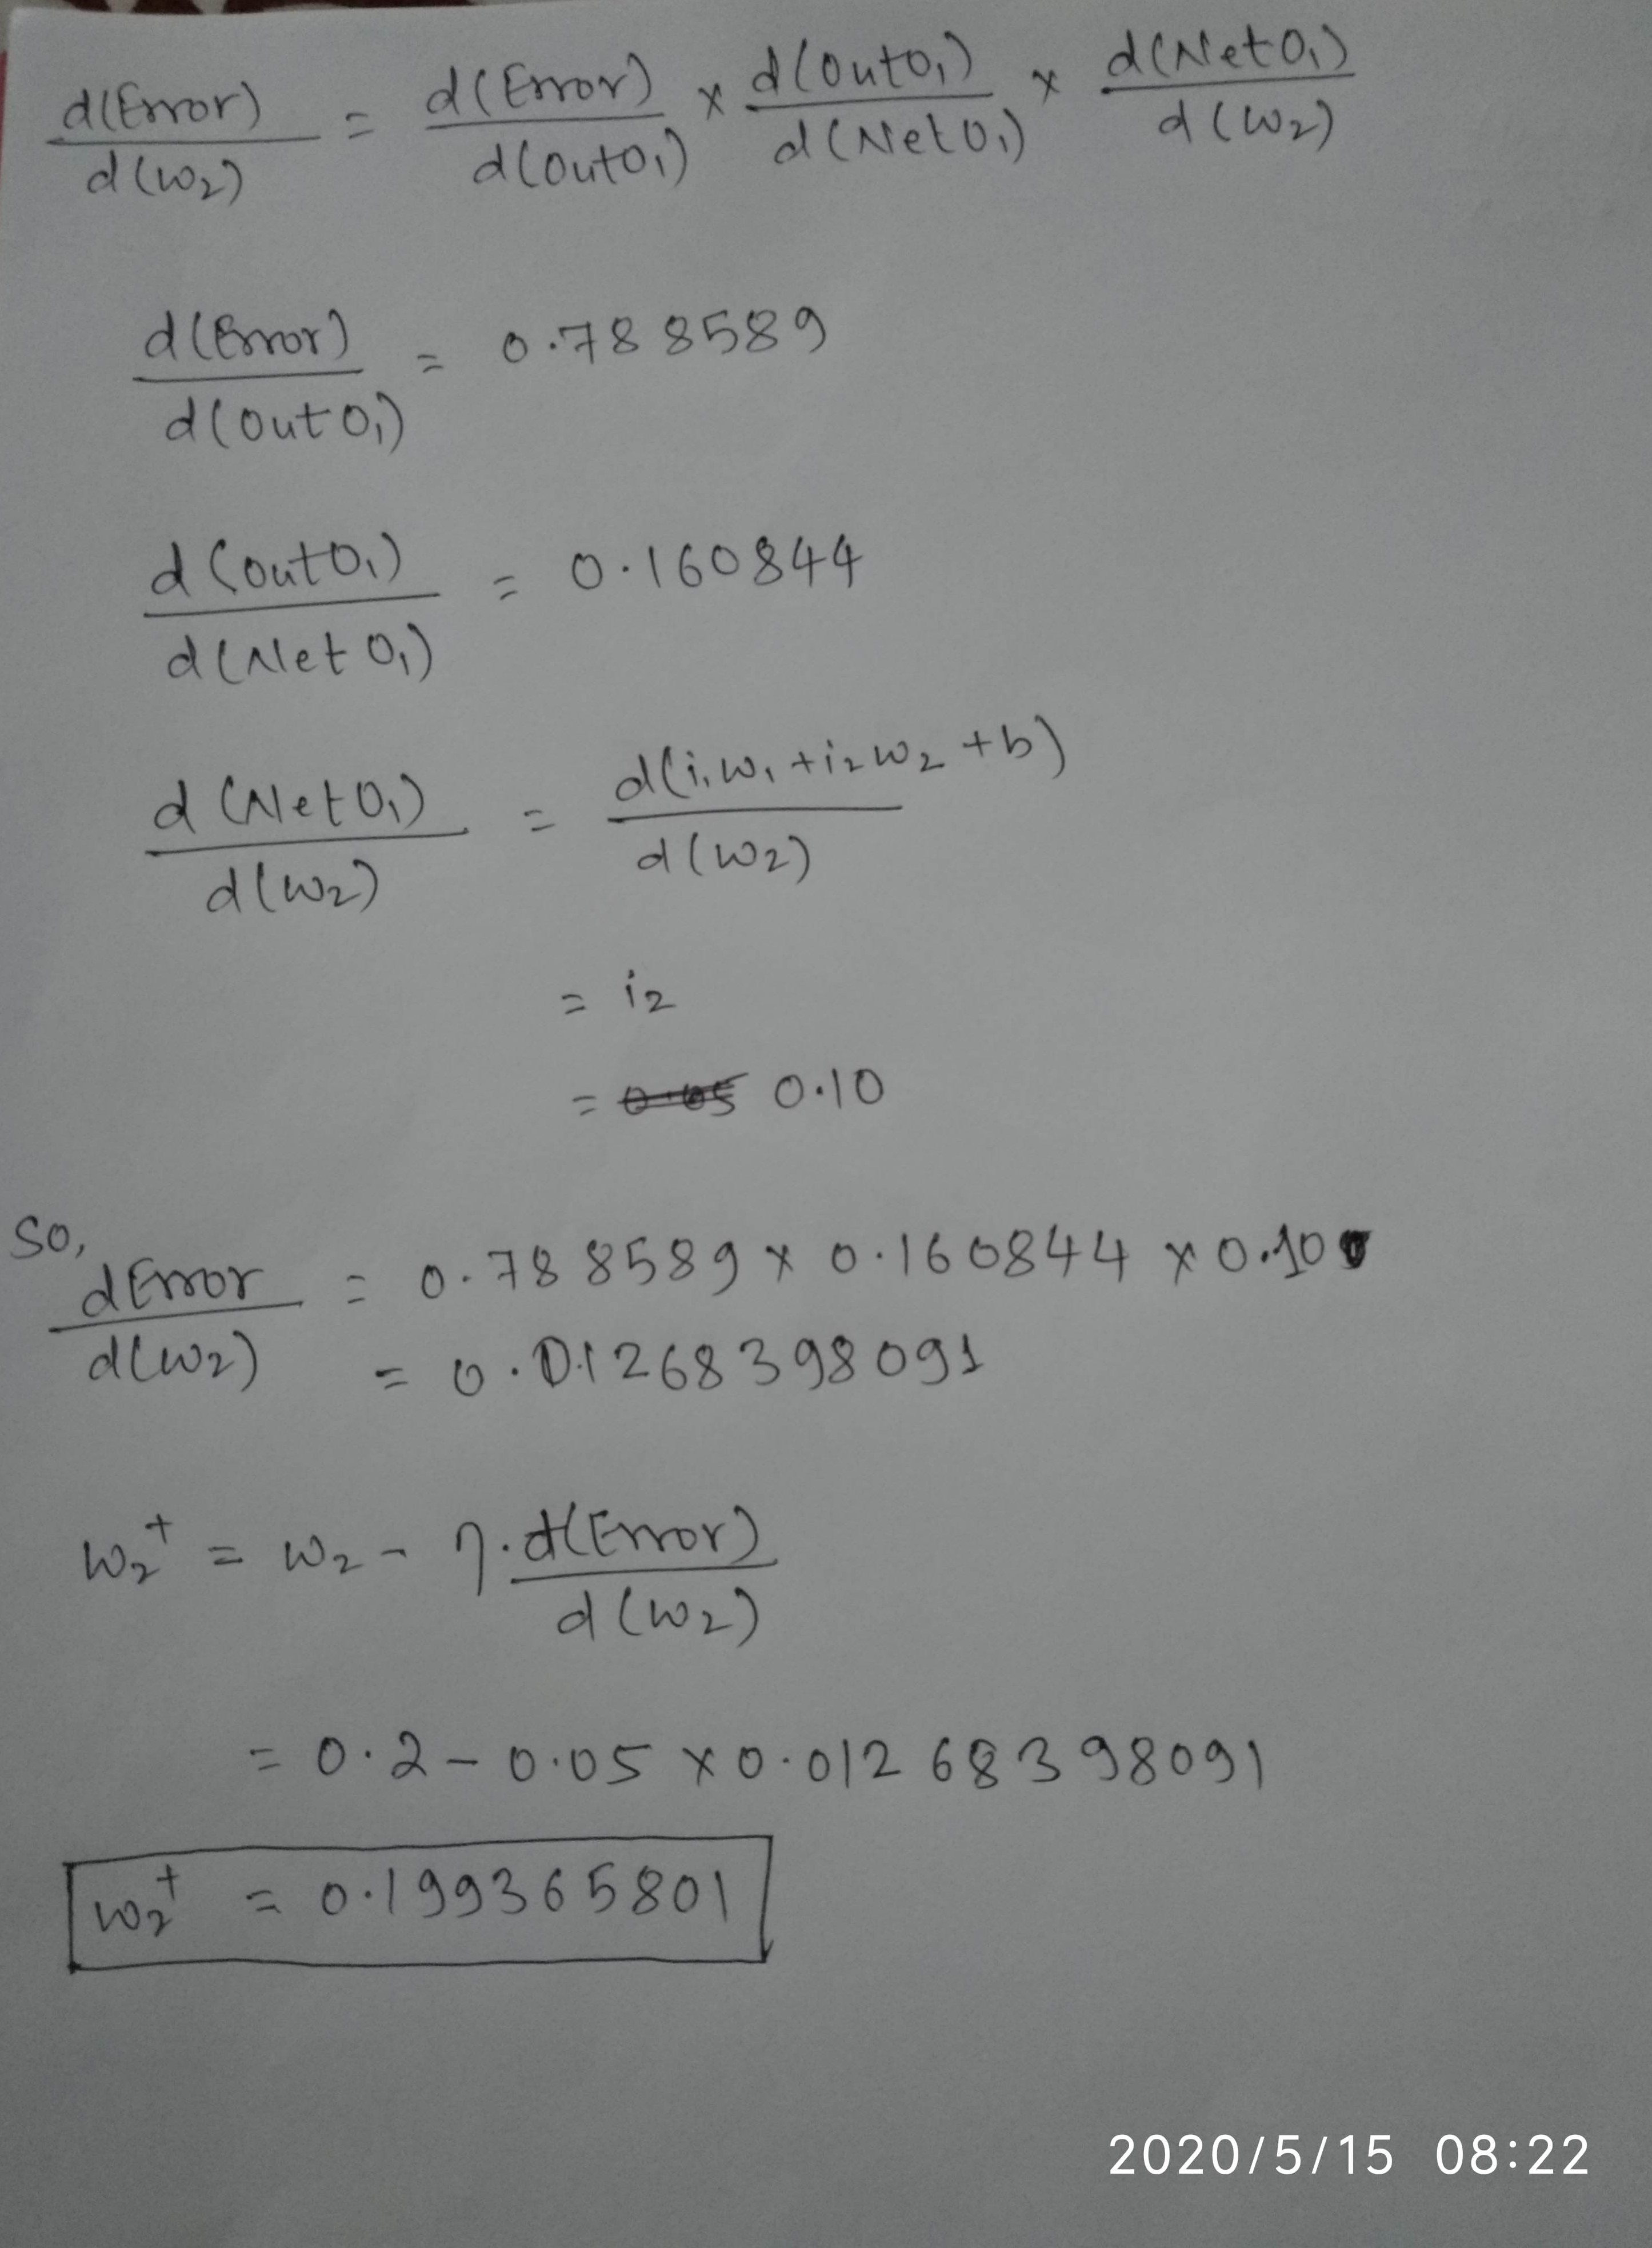 d(Error)/d(w₂) = d(Error)/d(outO₁) × d(outO₁)/d(NetO₁) × d(NetO₁)/d(w₂)
d(Error)/d(outO₁) = 0.788589
d(outO₁)/d(NetO₁) = 0.160844
d(NetO₁)/d(w₂) = d(i₁w₁+i₂w₂+b)/d(w₂)
= i₂
= 0.05 0.10
So,
dError/d(w₂) = 0.788589 × 0.160844 × 0.10
= 0.01268398091
w₂⁺ = w₂ - η.d(Error)/d(w₂)
= 0.2 - 0.05 × 0.01268398091
w₂⁺ = 0.199365801
2020/5/15 08:22